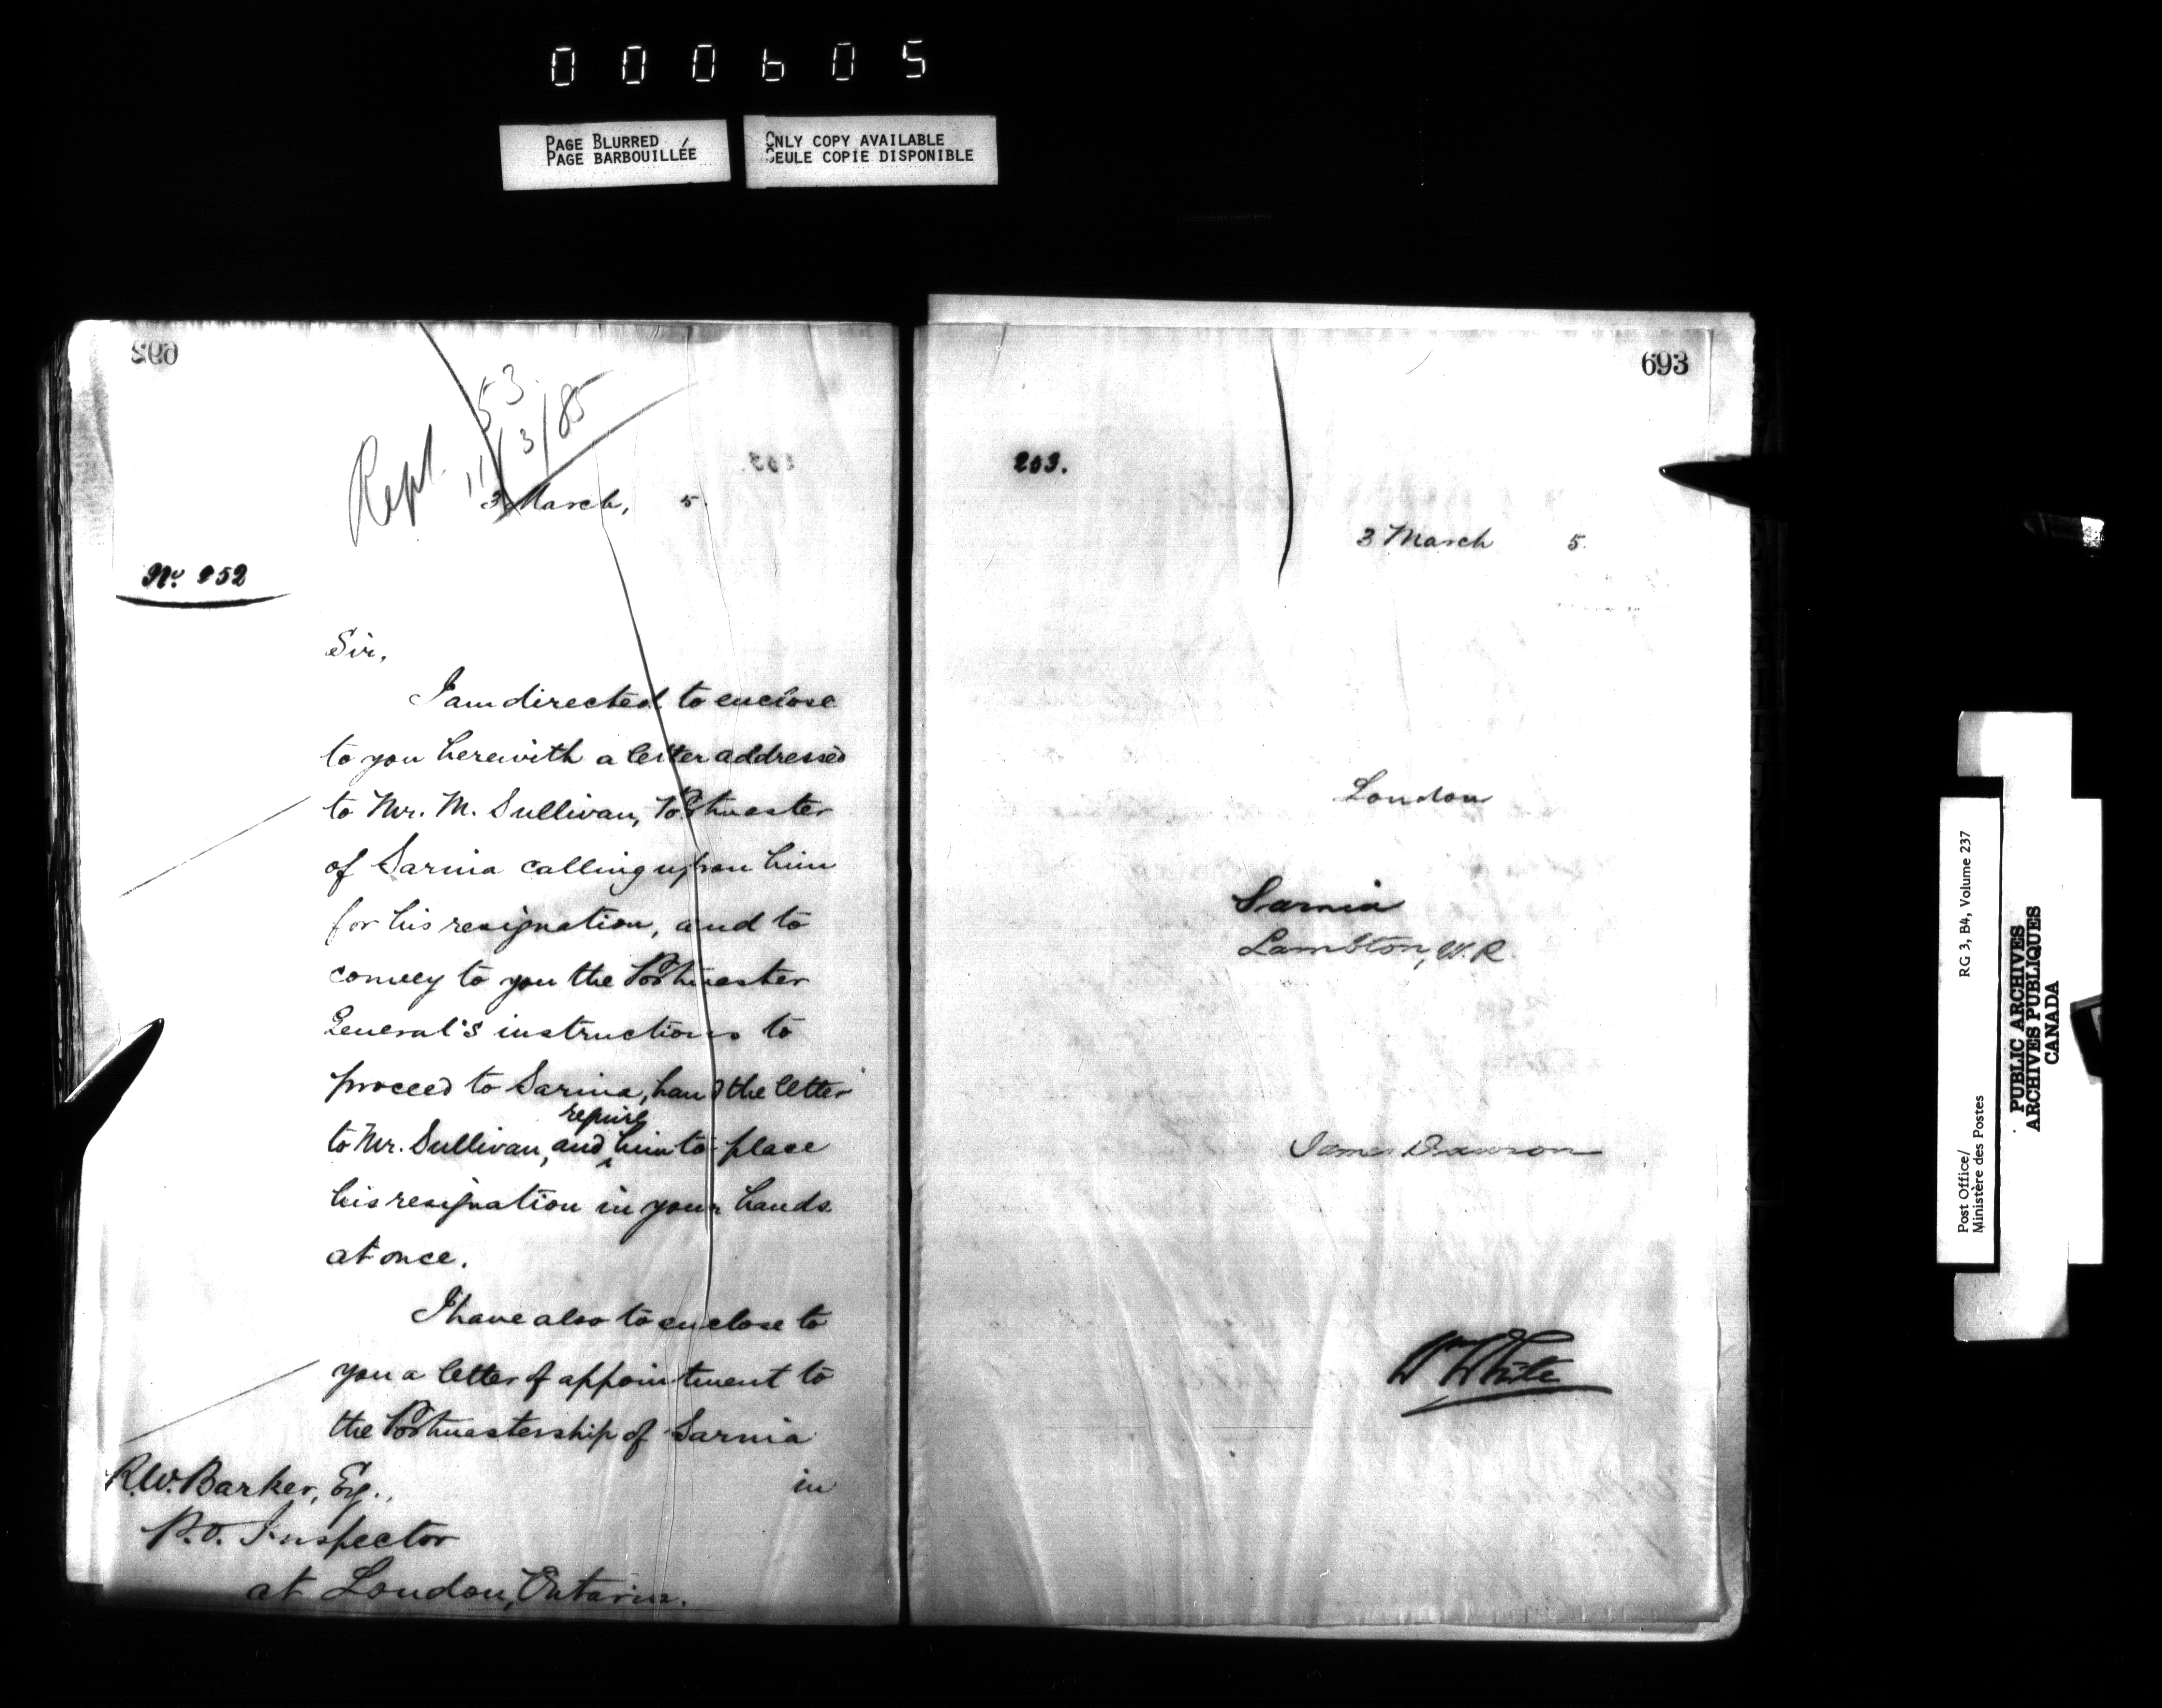 000605
PAGE BLURRED
PAGE BARBOUILLÉE
ONLY COPY AVAILABLE
SEULE COPIE DISPONIBLE
Rept 53.
11/3/85
3 March, 5.
No. 252
Sir,
I am directed to enclose
to you herewith a letter addressed
to Mr. M. Sullivan, Postmaster
of Sarnia calling upon him
for his resignation, and to
convey to you the Postmaster
General's instructions to
proceed to Sarnia, hand the letter
to Mr. Sullivan, and require him to place
his resignation in your hands
at once.
I have also to enclose to
you a letter of appointment to
the Postmastership of Sarnia
in
R.W. Barker, Esq.,
P.O. Inspector
at London, Ontario.
693
253.
3 March 5.
London
Sarnia
Lambton, W.R.
James Dawson
W White
Post Office/
Ministère des Postes
RG 3, B4, Volume 237
PUBLIC ARCHIVES
ARCHIVES PUBLIQUES
CANADA